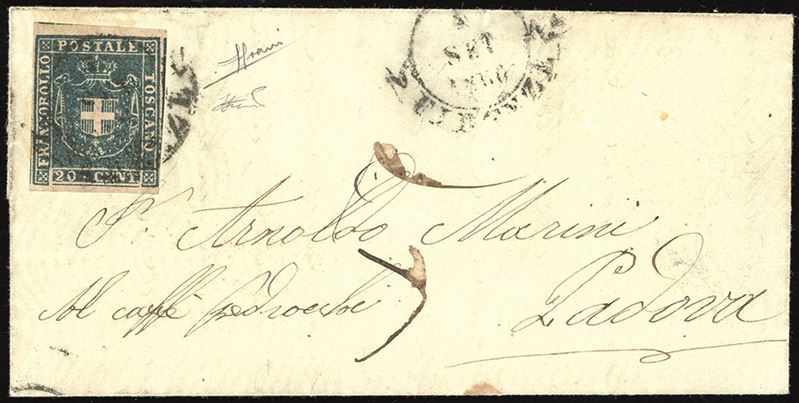 FRANCOBOLLO
POSTALE
TOSCANO
20 CENT
SET
1860
FIRENZE
S. Arnoldo Marini
Al caffè Pedrocchi
Padova
5